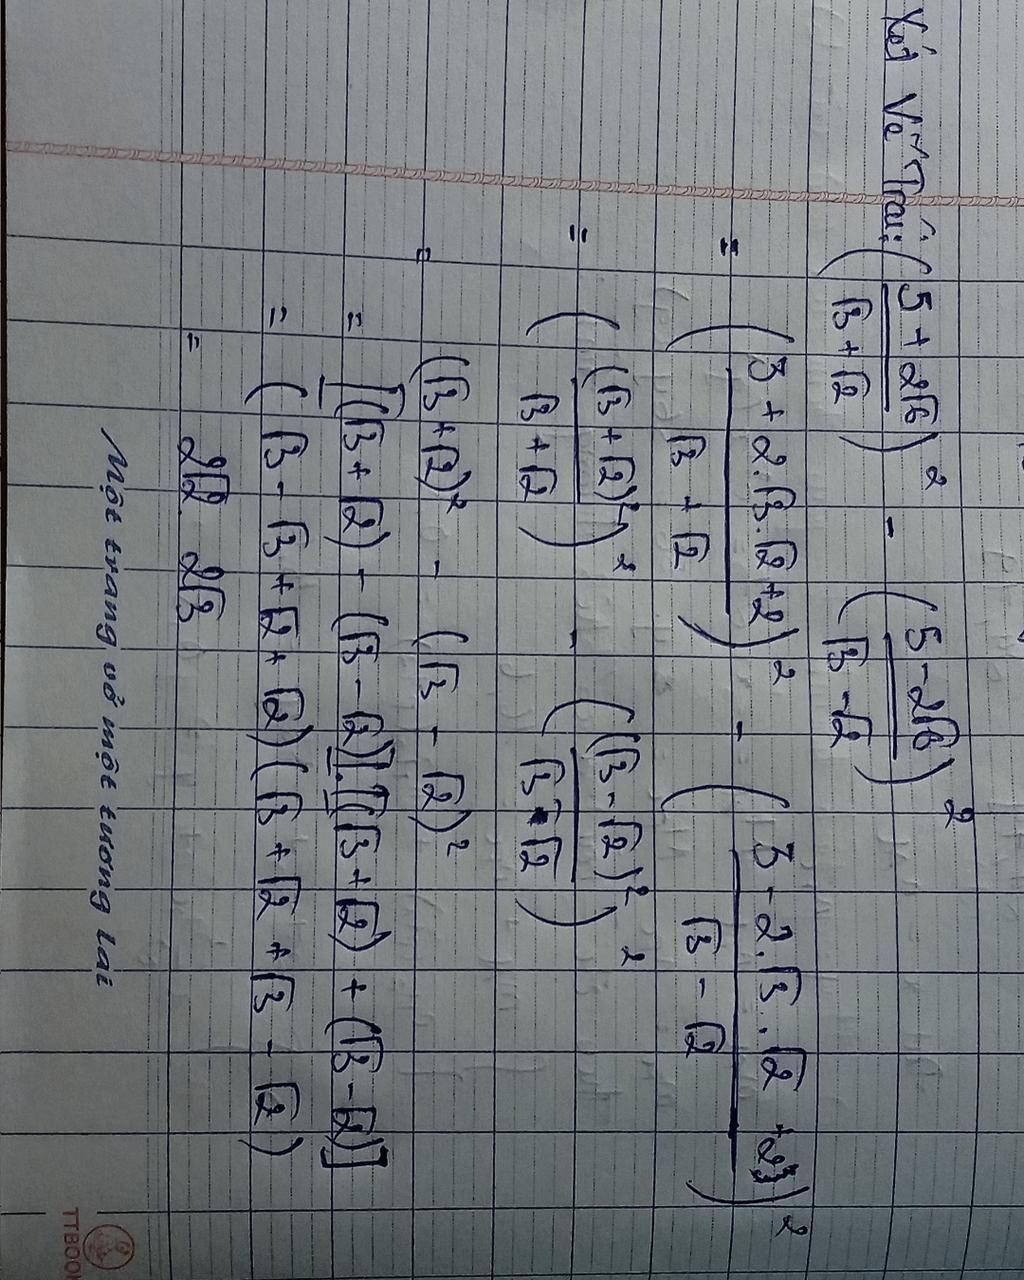 Xét Vế Trái: ((5 + 2√6)/(√3 + √2))² - ((5 - 2√6)/(√3 - √2))²
= ((3 + 2.√3.√2 + 2)/(√3 + √2))² - ((3 - 2.√3.√2 + 2)/(√3 - √2))²
= ((√3 + √2)²/(√3 + √2))² - ((√3 - √2)²/(√3 - √2))²
= (√3 + √2)² - (√3 - √2)²
= [(√3 + √2) - (√3 - √2)].[(√3 + √2) + (√3 - √2)]
= (√3 - √3 + √2 + √2)(√3 + √2 + √3 - √2)
= 2√2 . 2√3
Một trang vở một tương lai